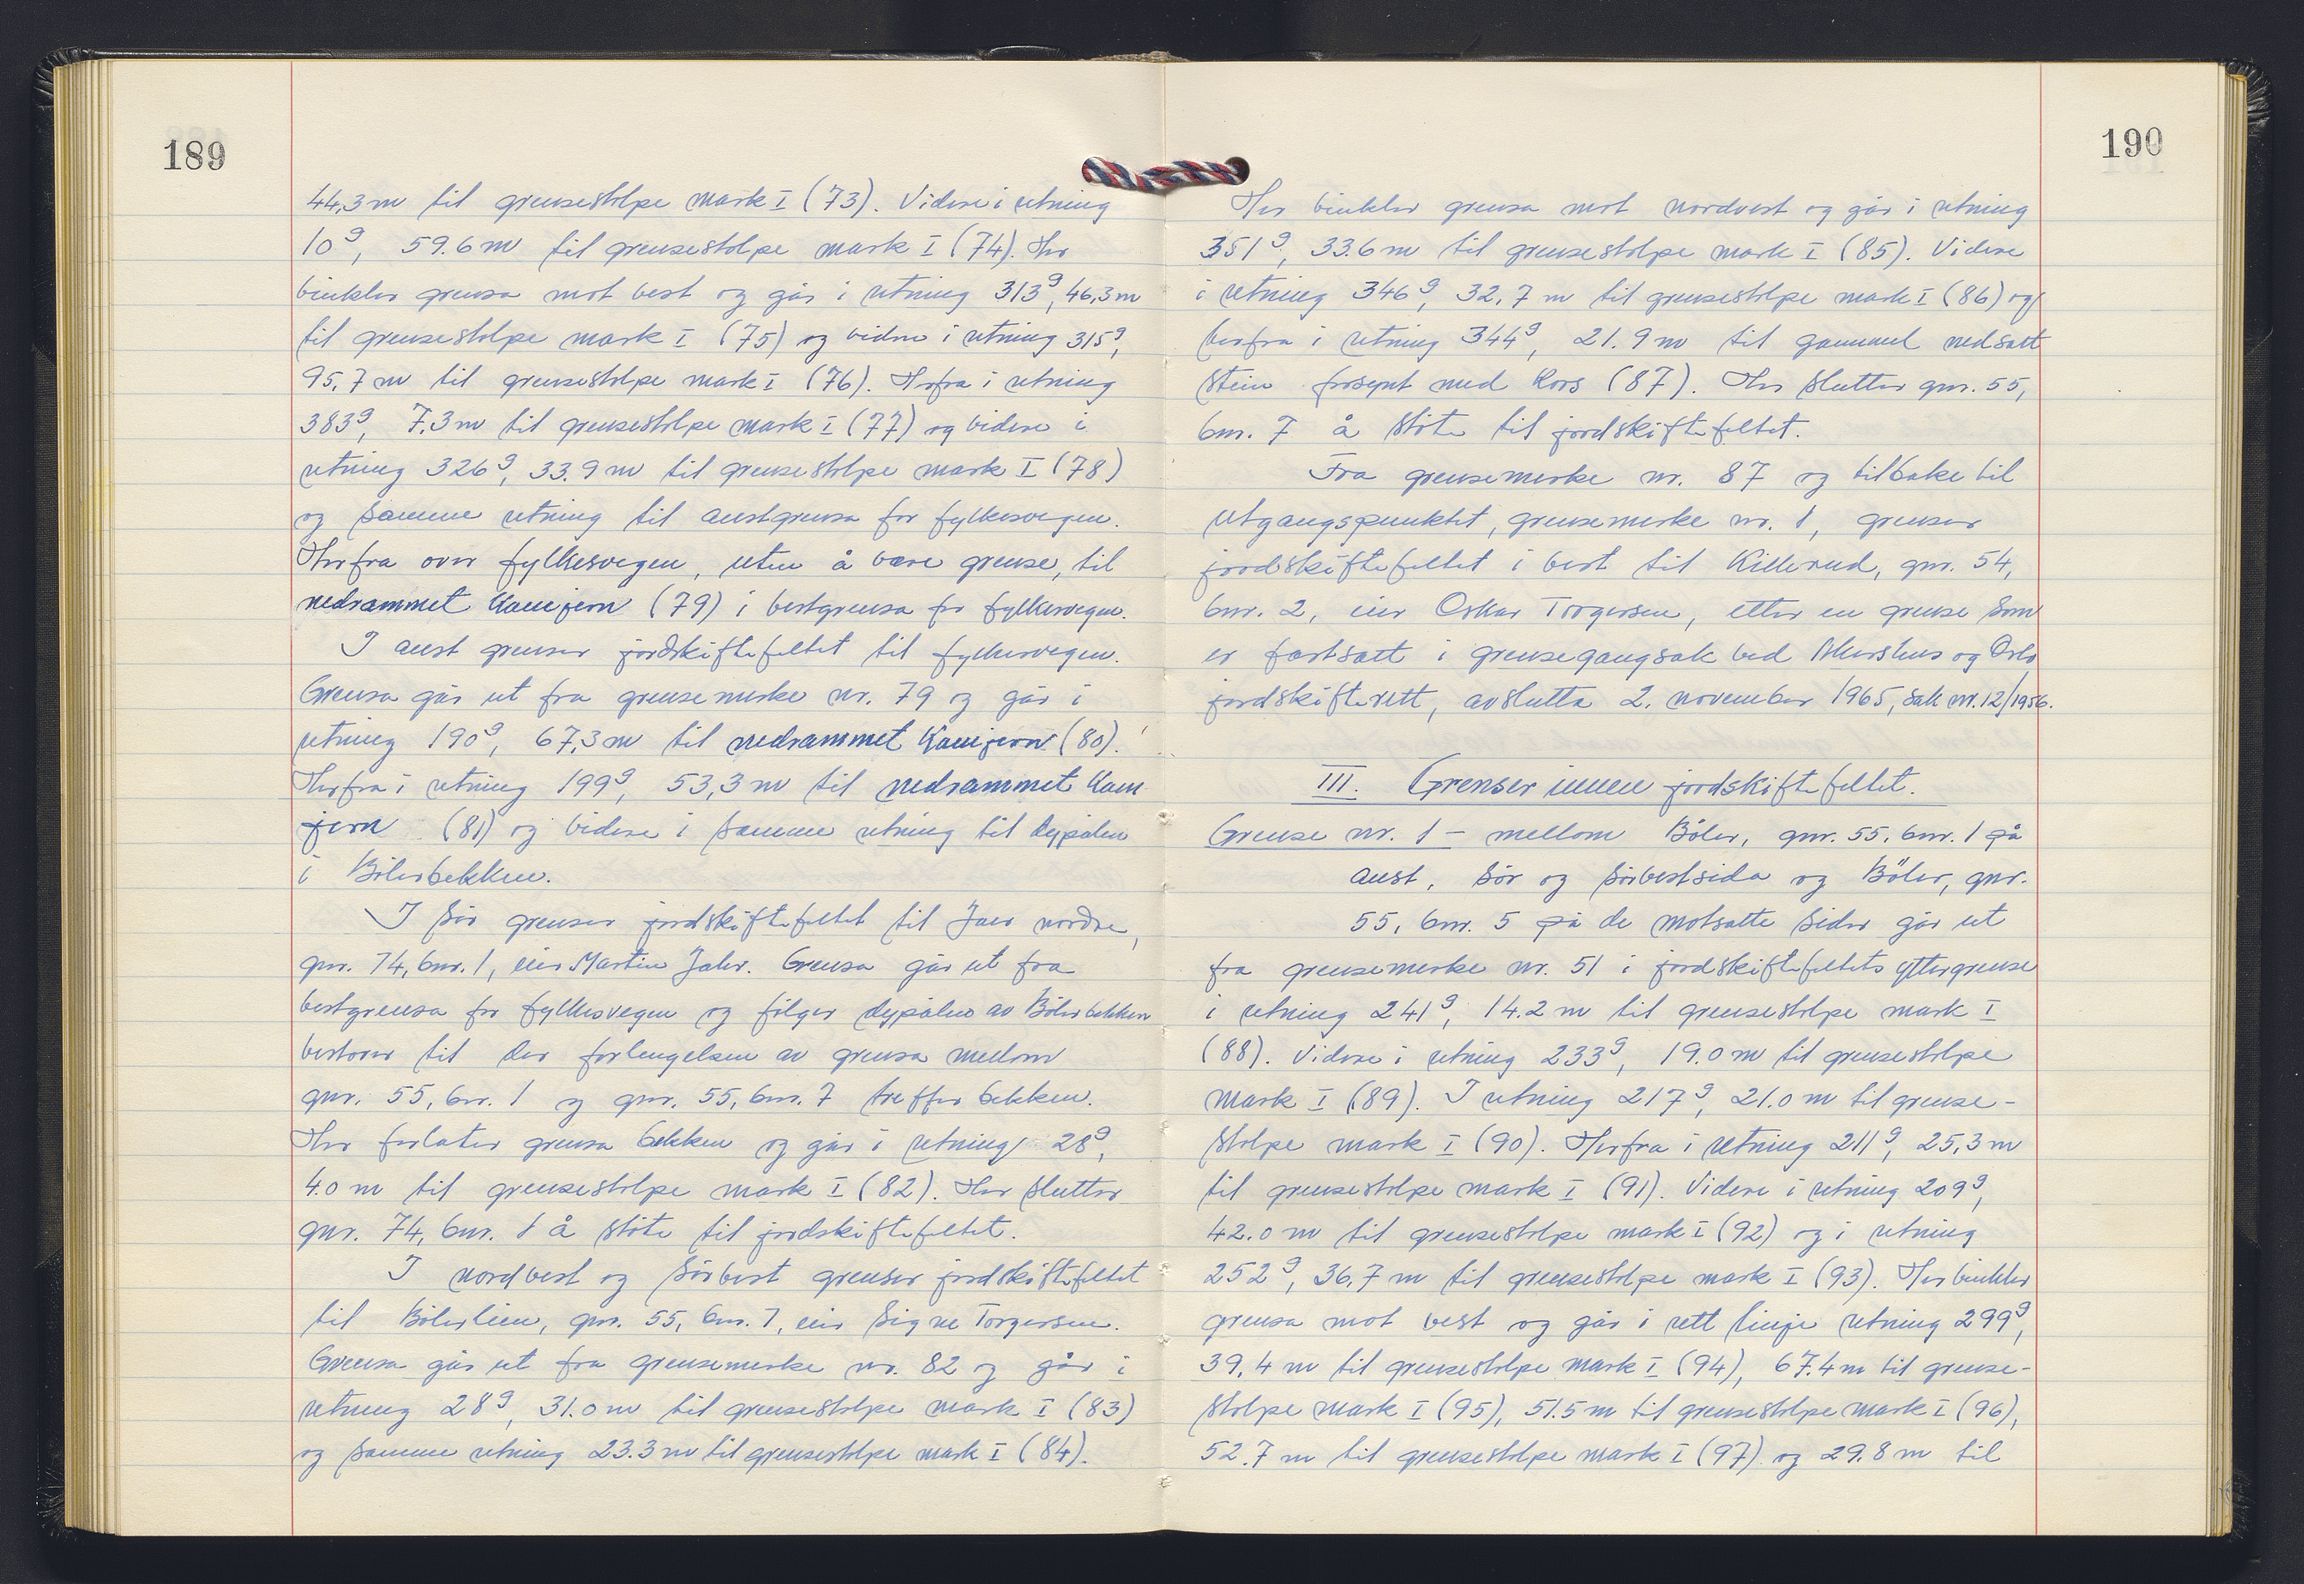 189
44,3 m til grensestolpe mark I (73). Videre i retning
10g, 59.6 m til grensestolpe mark I (74). Her
vinkler grensa mot vest og går i retning 313g, 46,3 m
til grensestolpe mark I (75) og videre i retning 315g,
95,7 m til grensestolpe mark I (76). Herfra i retning
383g, 7.3 m til grensestolpe mark I (77) og videre i
retning 326g, 33.9 m til grensestolpe mark I (78)
og samme retning til austgrensa for fylkesvegen.
Herfra over fylkesvegen, uten å være grense, til
nedrammet kamjern (79) i vestgrensa for fylkesvegen.
I aust grenser jordskiftefeltet til fylkesvegen.
Grensa går ut fra grensemerke nr. 79 og går i
retning 190g, 67,3 m til nedrammet kamjern (80).
Herfra i retning 199g, 53,3 m til nedrammet kam-
jern (81) og videre i samme retning til dypålen
i Bölerbekken.
I sör grenser jordskiftefeltet til Jaer nordre,
gnr. 74, bnr. 1, eier Martin Jahr. Grensa går ut fra
vestgrensa for fylkesvegen og følger dypålen av Bölerbekken
vestover til der forlengelsen av grensa mellom
gnr. 55, bnr. 1 og gnr. 55, bnr. 7 treffer bekken.
Her forlater grensa bekken og går i retning 28g,
4.0 m til grensestolpe mark I (82). Her slutter
gnr. 74, bnr. 1 å støte til jordskiftefeltet.
I nordvest og sörvest grenser jordskiftefeltet
til Bölerlien, gnr. 55, bnr. 7, eier Signe Torgersen.
Grensa går ut fra grensemerke nr. 82 og går i
retning 28g, 31.0 m til grensestolpe mark I (83)
og samme retning 23.3 m til grensestolpe mark I (84).
190
Her vinkler grensa mot nordvest og går i retning
351g, 33.6 m til grensestolpe mark I (85). Videre
i retning 346g, 32,7 m til grensestolpe mark I (86) og
herfra i retning 344g, 21.9 m til gammel nedsatt
stein forsynt med kors (87). Her slutter gnr. 55,
bnr. 7 å støte til jordskiftefeltet.
Fra grensemerke nr. 87 og tilbake til
utgangspunktet, grensemerke nr. 1, grenser
jordskiftefeltet i vest til Killerud, gnr. 54,
bnr. 2, eier Oskar Torgersen, etter en grense som
er fastsatt i grensegangsak ved Akershus og Oslo
jordskifterett, avslutta 2. november 1965, sak nr. 12/1956.
III. Grenser innen jordskiftefeltet.
Grense nr. 1 - mellom Böler, gnr. 55, bnr. 1 på
aust, sör og sörvestsida og Böler, gnr.
55, bnr. 5 på de motsatte sider går ut
fra grensemerke nr. 51 i jordskiftefeltets yttergrense
i retning 241g, 14.2 m til grensestolpe mark I
(88). Videre i retning 233g, 19.0 m til grensestolpe
mark I (89). I retning 217g, 21.0 m til grense-
stolpe mark I (90). Herfra i retning 211g, 25,3 m
til grensestolpe mark I (91). Videre i retning 209g,
42.0 m til grensestolpe mark I (92) og i retning
252g, 36,7 m til grensestolpe mark I (93). Her vinkler
grensa mot vest og går i rett linje retning 299g,
39,4 m til grensestolpe mark I (94), 67.4 m til grense-
stolpe mark I (95), 51.5 m til grensestolpe mark I (96),
52.7 m til grensestolpe mark I (97) og 29.8 m til